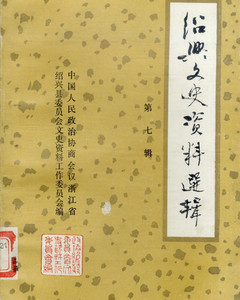 绍兴文史资料選辑
第七辑
中国人民政治协商会议浙江省
绍兴县委员会文史资料工作委员会编